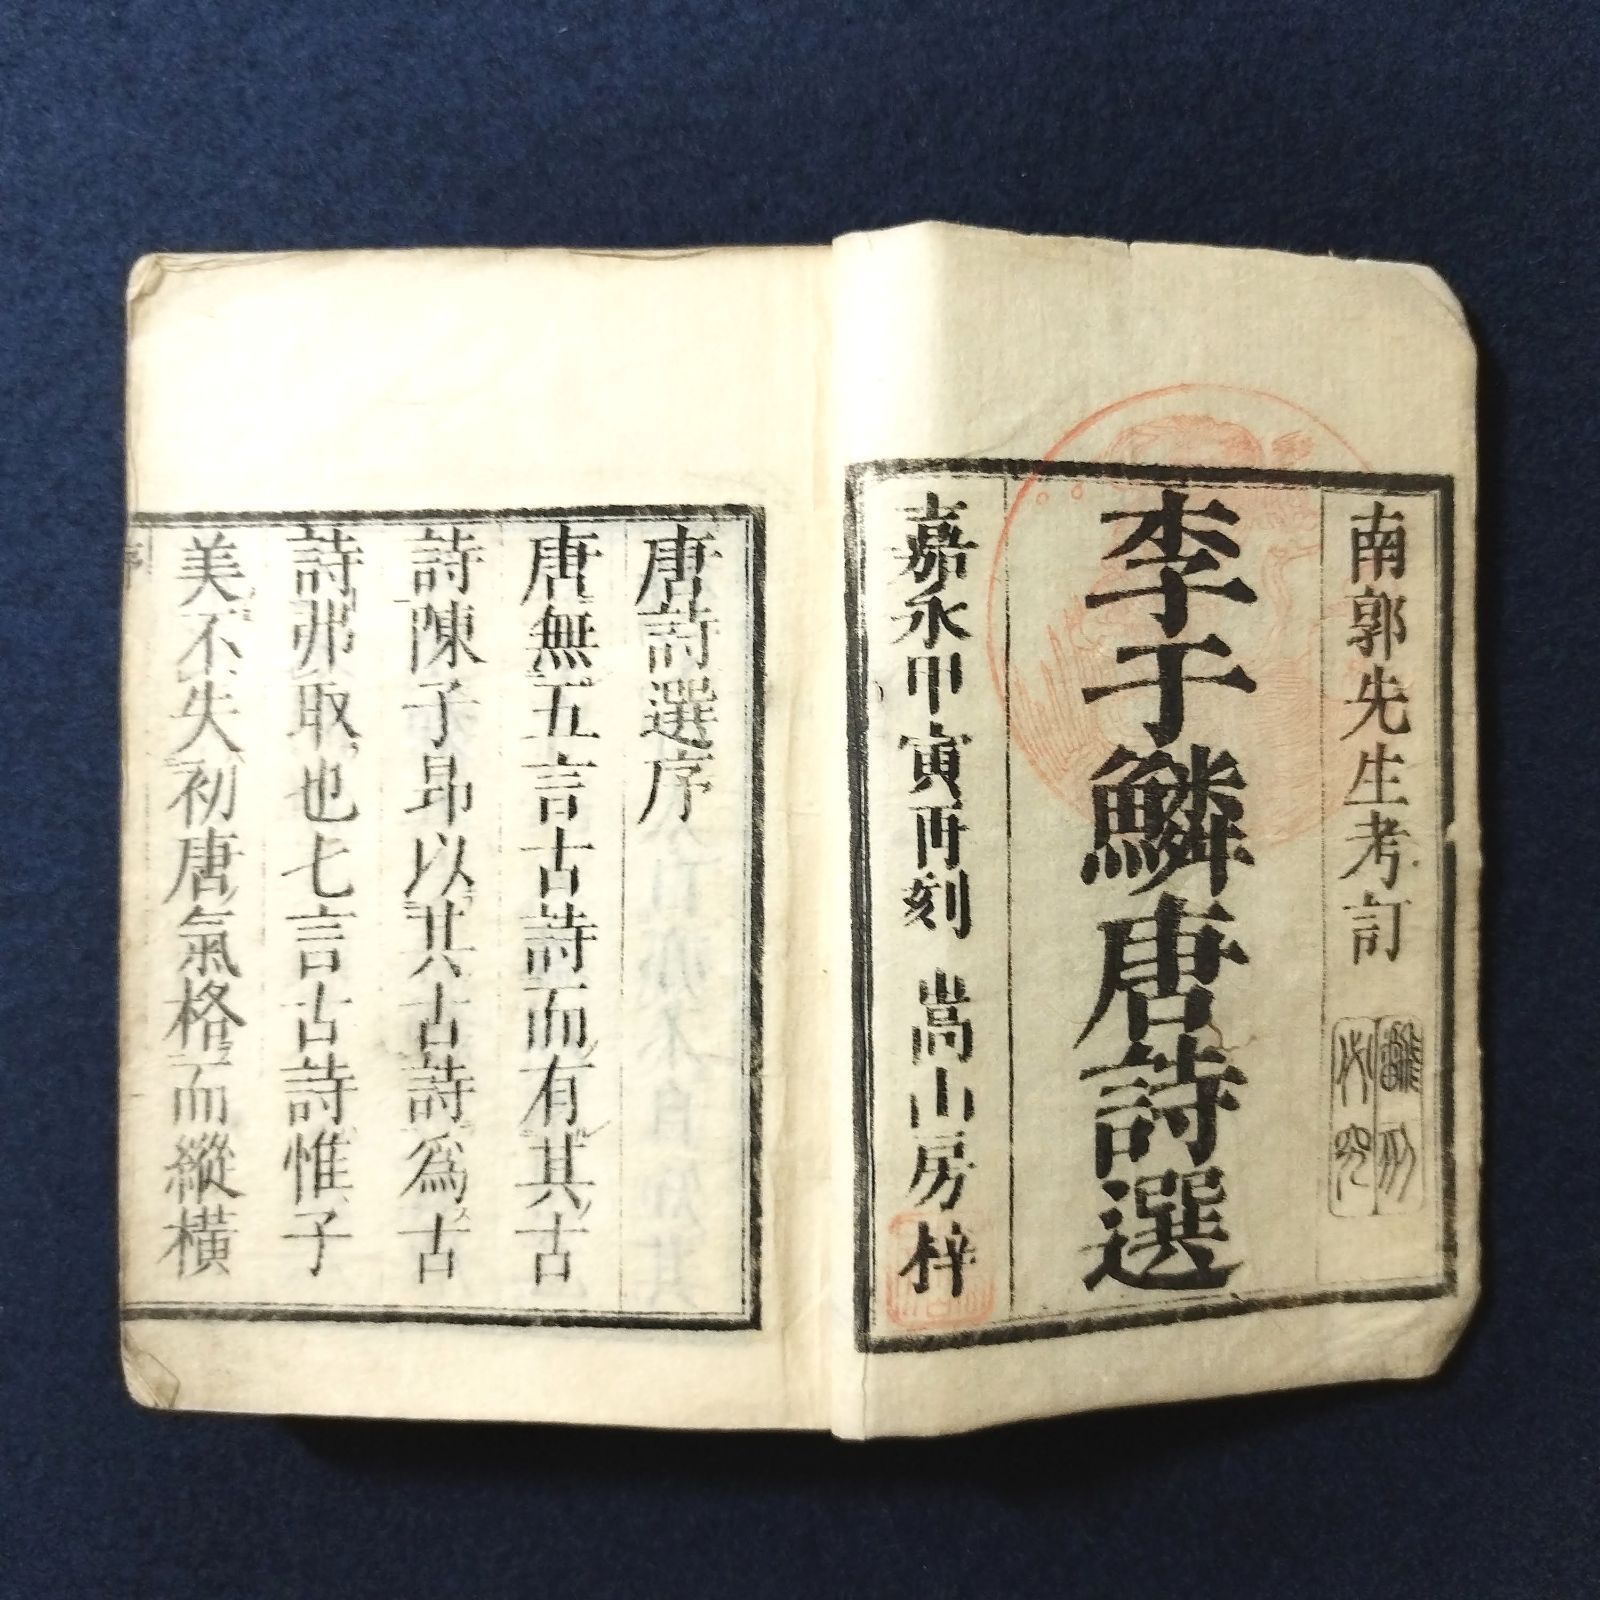 南郭先生考訂
李于鱗唐詩選
嘉永甲寅再刻 嵩山房梓
唐詩選序
唐無五言古詩而有其古
詩陳子昂以其古詩爲古
詩弗取也七言古詩惟子
美不失初唐氣格而縱橫